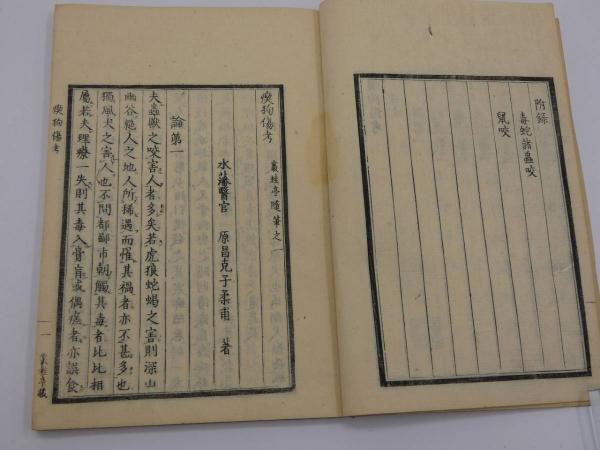 附録
毒蛇諸蟲咬
鼠咬
瘈狗傷考
叢桂亭隨筆之一
水藩醫官 原昌克子柔甫 著
論第一
夫蟲獸之咬害人者多矣若虎狼蛇蝎之害則深山
幽谷絶人之地人所稀遇而罹其禍者亦不甚多也
獨風犬之害人也不問都鄙市朝觸其毒者比比相
屬若夫理療一失則其毒入膏肓或偶瘥者亦誤食
瘈狗傷考
一
叢桂亭藏